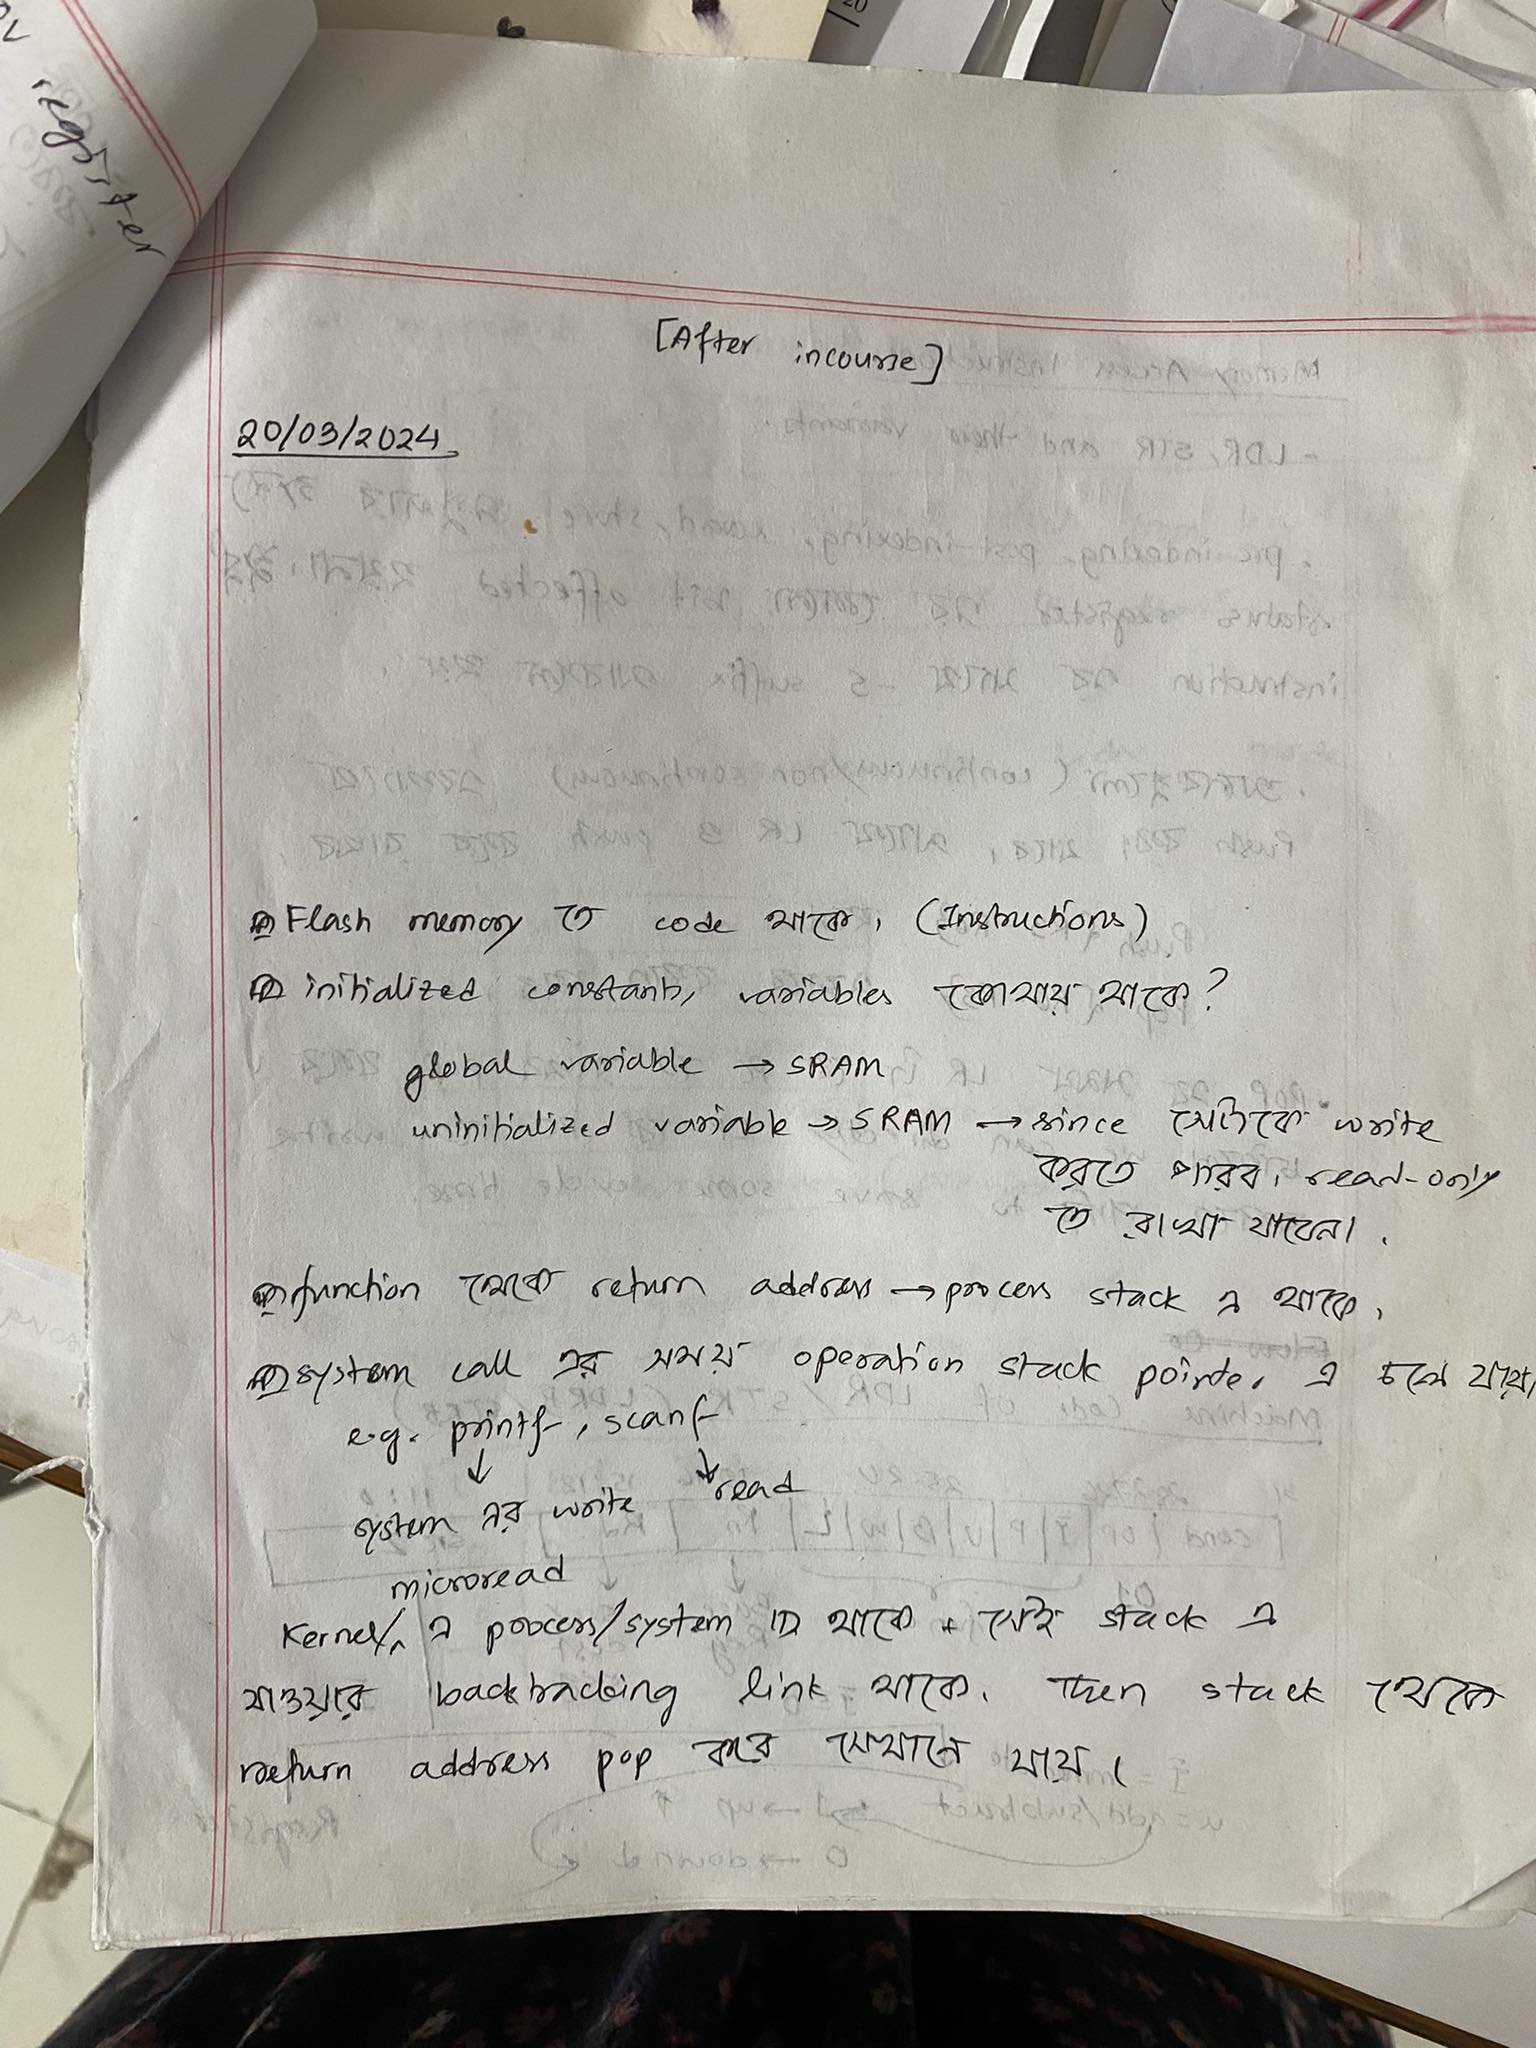 register
[After incourse]
20/03/2024
Flash memory তে code থাকে। (Instructions)
initialized constants, variables কোথায় থাকে?
global variable → SRAM
uninitialized variable → SRAM → since সেটাকে write
করতে পারব। read-only
তে রাখা যাবেনা।
function থেকে return address → process stack এ থাকে।
system call এর সময় operation stack pointer এ চলে যায়।
e.g. printf, scanf
↓ ↓
read
system এর write
microread
Kernel/^ এ process/system ID থাকে + সেই stack এ
যাওয়ার backtracking link থাকে। Then stack থেকে
return address pop করে সেখানে যায়।